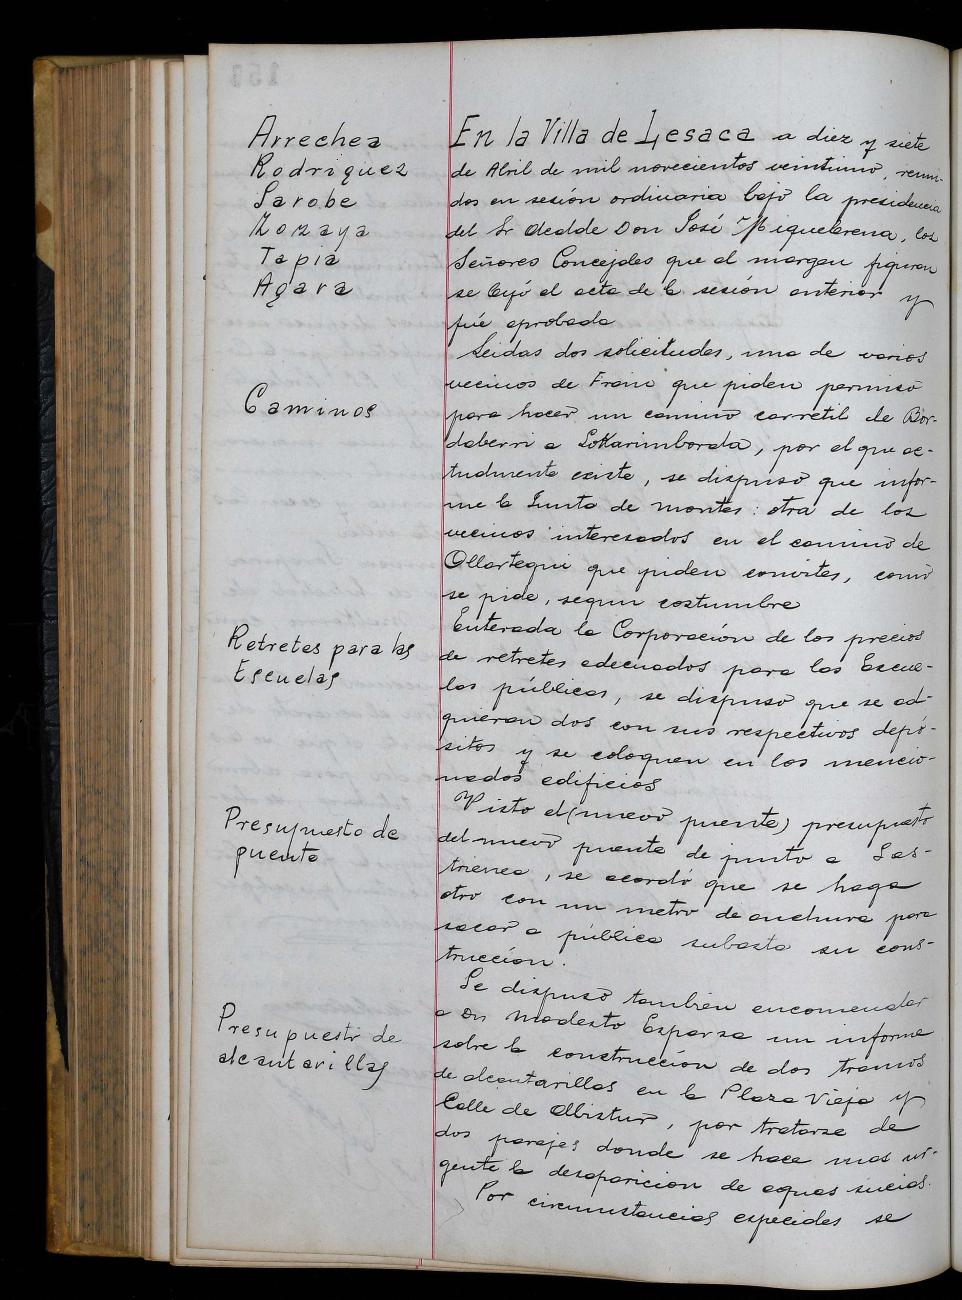 Arrechea
Rodriguez
Sarobe
Zozaya
Tapia
Agara
En la Villa de Lesaca a diez y siete
de Abril de mil novecientos veintiuno, reuni-
dos en sesión ordinaria bajo la presidencia
del Sr Alcalde Don José Miquelerena, los
Señores Concejales que al margen figuran
se leyó el acta de la sesión anterior y
fué aprobada
Leidas dos solicitudes, una de varios
Caminos
vecinos de Frain que piden permiso
para hacer un camino carretil de Bor-
daberri a Lokarimborda, por el que ac-
tualmente existe, se dispuso que infor-
me la Junta de montes: otra de los
vecinos interesados en el camino de
Ollartegui que piden convites, como
se pide, segun costumbre
Retretes para las
Escuelas
Enterada la Corporación de los precios
de retretes adecuados para las Escue-
las públicas, se dispuso que se ad-
quieran dos con sus respectivos depó-
sitos y se coloquen en los mencio-
nados edificios
Presupuesto de
puente
Visto el (nuevo puente) presupuesto
del nuevo puente de junto a Las-
trienea, se acordó que se haga
otro con un metro de anchura para
sacar a pública subasta su cons-
trucción.
Presupuesto de
alcantarillas
Se dispuso tambien encomendar
a Dn Modesto Esparza un informe
sobre la construcción de dos tramos
de alcantarillas en la Plaza Vieja y
Calle de Albistur, por tratarse de
dos parajes donde se hace mas ur-
gente la desaparicion de aguas sucias.
Por circunstancias especiales se